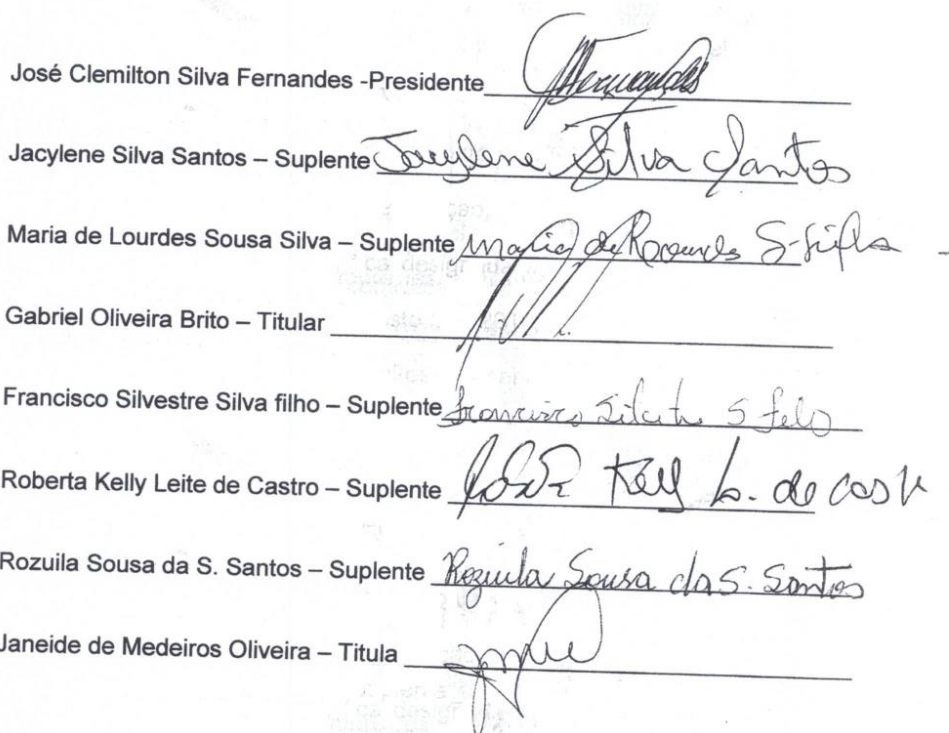 José Clemilton Silva Fernandes -Presidente Fernandes
Jacylene Silva Santos – Suplente Jacylene Silva Santos
Maria de Lourdes Sousa Silva – Suplente Maria de Lourdes S-Silva
Gabriel Oliveira Brito – Titular
Francisco Silvestre Silva filho – Suplente Francisco S
Roberta Kelly Leite de Castro – Suplente Kelly L. de
Rozuila Sousa da S. Santos – Suplente Rozuila Sousa da S. Santos
Janeide de Medeiros Oliveira – Titula